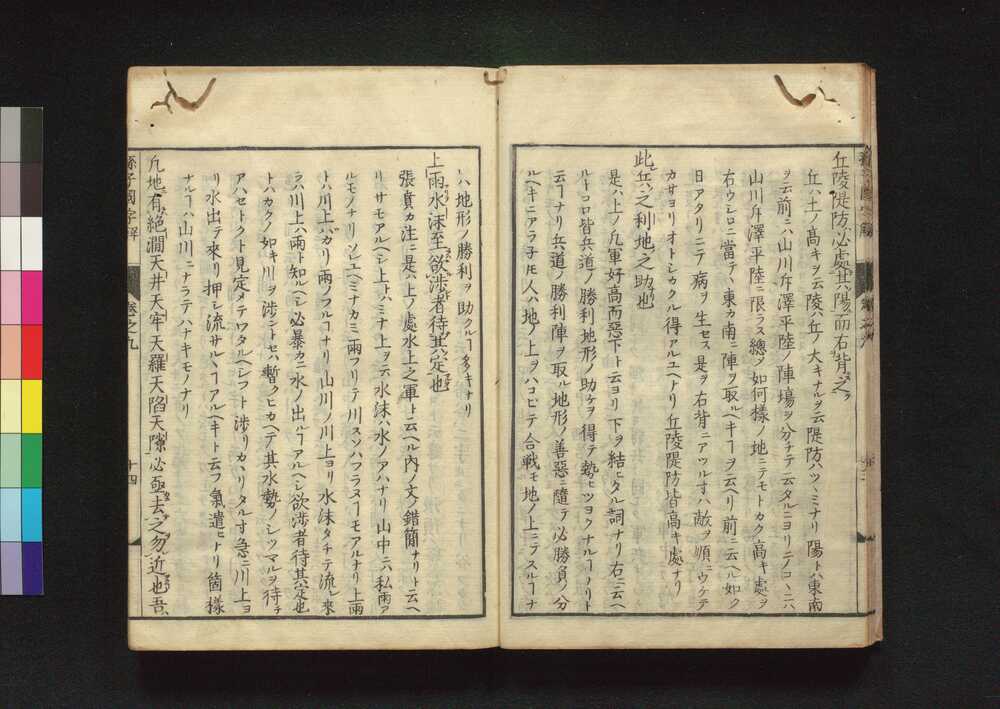 丘陵隄防必處其陽而右背之
丘ハ土ノ高キヲ云陵ハ丘ノ大キナルヲ云隄防ハツヽミナリ陽トハ東南
ヲ云前ニハ山川斥澤平陸ノ陣場ヲ分チテ云タルニヨリテコヽニハ
山川斥澤平陸ニ限ラス總シテ如何樣ノ地ニテモトカク高キ處ヲ
右ウシロニ當テ東カ南ニ陣ヲ取ルヘキヿヲ云ヘリ前ニ云ヘル如ク
日アタリニテ病ヲ生セス是ヲ右背ニアツル寸ハ敵ヲ順ニウケテ
カサヨリオトシカクル得アルユヘナリ丘陵隄防皆高キ處ナリ
此兵之利地之助也
是ハ上ノ凡軍好高而惡下ト云ヨリ下ヲ結ヒタル詞ナリ右ニ云ヘ
ルトコロ皆兵道ノ勝利地形ノ助ケヲ得テ勢ヒツヨクナルヿナリト
云ヿナリ兵道ノ勝利陣ヲ取ル地形ノ善惡ニ隨テ必勝負ノ分
ルヘキニアラ子𪜈人ハ地ノ上ヲハコビテ合戰モ地ノ上ニテスルヿナ
レハ地形ノ勝利ヲ助クルヿ多キナリ
上雨水沫至欲涉者待其定也
張賁カ注ニ是ハ上ノ處水上之軍ト云ヘル内ノ文ノ錯簡ナリト云ヘ
リサモアルヘシ上トハミナ上ヲ云水沫ハ水ノアハナリ山中ニハ私雨ア
ルモノナリソレユヘミナカミ雨フリテ川スソハフラヌヿモアルナリ上雨
トハ川上バカリ雨ノフルヿナリ山川ノ川上ヨリ水沫タチテ流レ來
ラハ川上ハ雨ト知ルヘシ必暴カニ水ノ出ルヿアルヘシ欲涉者待其定也
トハカクノ如キ川ヲ涉ントセハ暫クヒカヘテ其水勢ノシツマルヲ待チ
アハセトクト見定メテワタルヘシフト涉リカヽリタル寸急ニ川上ヨ
リ水出テ來リ押シ流サルヽヿアルヘキト云フ氣遣ヒナリ箇樣
ナルヿハ山川ニナラテハナキモノナリ
凡地有絕澗天井天牢天羅天陷天隙必亟去之勿近也吾
孫子國字解
卷之九
十四